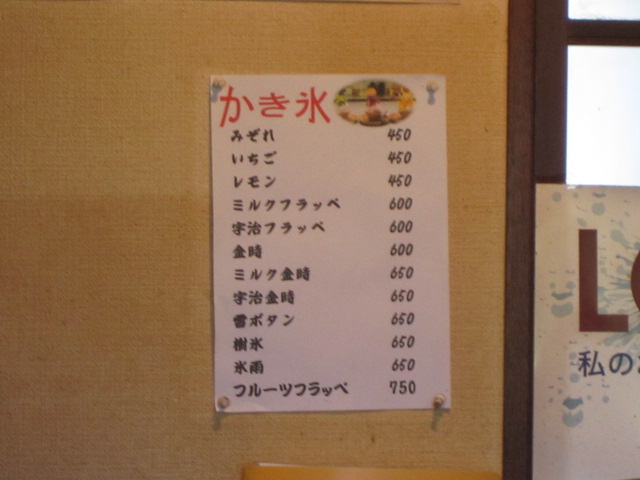 かき氷
みぞれ 450
いちご 450
レモン 450
ミルクフラッペ 600
宇治フラッペ 600
金時 600
ミルク金時 650
宇治金時 650
雪ボタン 650
樹氷 650
氷雨 650
フルーツフラッペ 750
L
私の